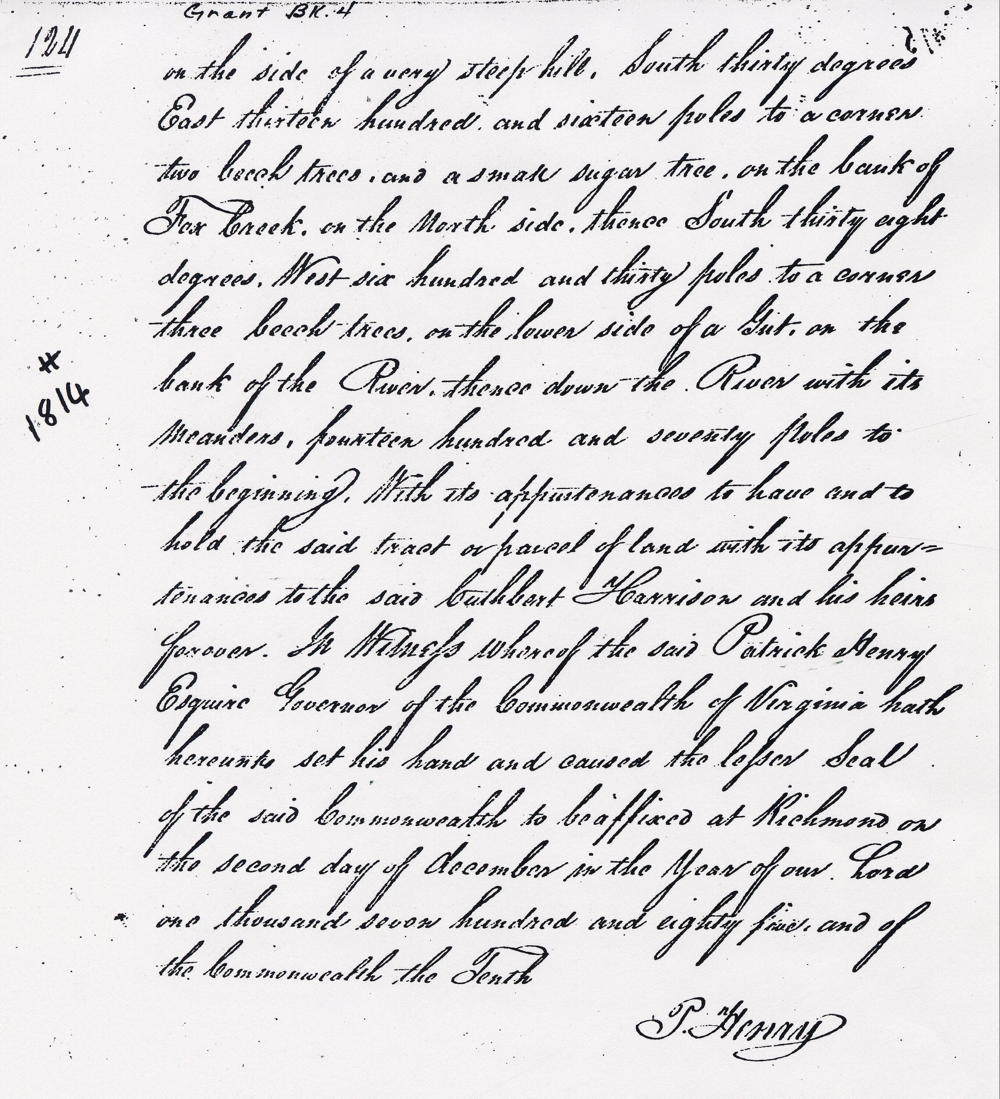 Grant BK. 4
124
on the side of a very steep hill, South thirty degrees
East thirteen hundred and sixteen poles to a corner
two beech trees, and a small sugar tree, on the bank of
Fox Creek, on the North side, thence South thirty eight
degrees, West six hundred and thirty poles to a corner
three beech trees, on the lower side of a Gut, on the
bank of the River, thence down the River with its
Meanders, fourteen hundred and seventy Poles to
the beginning, With its appurtenances to have and to
hold the said tract or parcel of land with its appur=
tenances to the said Cuthbert Harrison and his heirs
forever. In Witness whereof the said Patrick Henry
Esquire Governor of the Commonwealth of Virginia hath
hereunto set his hand and caused the lesser Seal
of the said Commonwealth to be affixed at Richmond on
the second day of December in the Year of our Lord
one thousand seven hundred and eighty five, and of
the Commonwealth the Tenth
P. Henry
#
1814